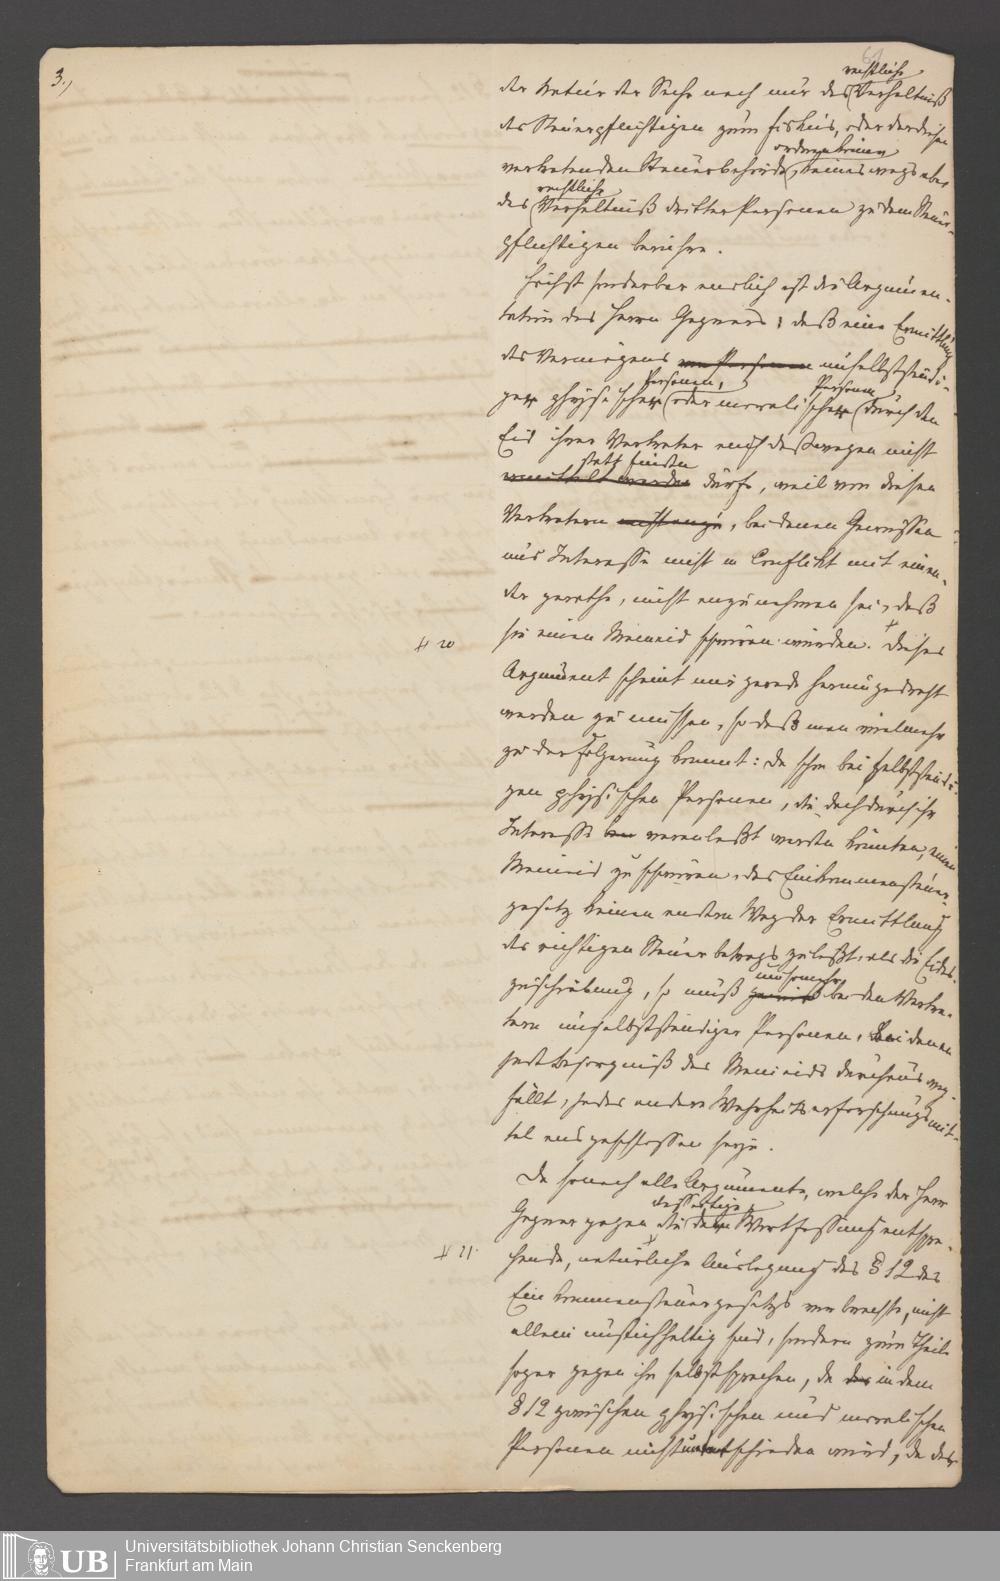 3.,
rechtliche
der Natur der Sache nach nur das Verhältniß
des Steuerpflichtigen zum Fiskus, oder der diesen
vertretenden Steuerbehörde, keineswegs aber
rechtliche
das Verhältniß dritter Personen zu dem Steuer-
pflichtigen berühre.
Höchst sonderbar endlich ist die Argumen-
tation des Herrn Gegners, daß eine Ermittlung
des Vermögens unselbstständi-
Personen, Personen
ger physischer oder moralischer durch den
Eid ihrer Vertreter auch deßwegen nicht
statt finden
ermittelt werden dürfe, weil von diesen
Vertretern, bei denen Gewissen
und Interesse nicht in Conflikt mit einan-
der gerathe, nicht anzunehmen sei, daß
# 20
sie einen Meineid schwören würden. Dieses
Argument scheint mir gerade herumgedreht
werden zu müssen, so daß man vielmehr
zu der Folgerung kommt: da schon bei selbstständi-
gen physischen Personen, die doch durch ihr
Interesse veranlaßt werden könnten, einen
Meineid zu schwören, das Einkommensteuer-
gesetz keinen andern Weg der Ermittlung
des richtigen Steuerbetrags zuläßt, als die Eides-
umsomehr
zuschiebung, so muß bei den Vertre-
tern unselbstständiger Personen, bei denen
jede Besorgniß des Meineids durchaus weg-
fällt, jedes andere Wahrheitserforschungsmit-
tel ausgeschlossen seyn.
Da sonach alle Argumente, welche der Herr
Gegner gegen die der Wortfassung entspre-
# 21.
chende, natürliche Auslegung des § 12 des
Einkommensteuergesetzes vorbrachte, nicht
allein unstichhaltig sind, sondern zum Theile
sogar gegen ihn selbst sprechen, da in dem
§ 12 zwischen physischen und moralischen
Personen nicht unterschieden wird, da das
UB
Universitätsbibliothek Johann Christian Senckenberg
Frankfurt am Main